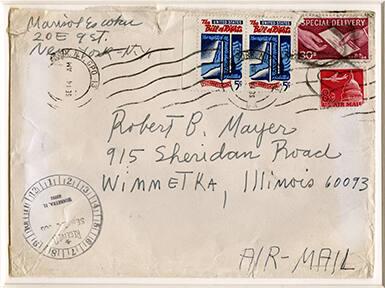 Marisol Escobar
20E 9ST.
New York-N.Y.
N.Y. GPO
SE 14 AM
UNITED STATES
The Bill of Rights
5¢
UNITED STATES
The Bill of Rights
5¢
SPECIAL DELIVERY
30¢
8¢
US AIR MAIL
Robert B. Mayer
915 Sheridan Road
WINMETKA, Illinois 60093
WINNETKA, IL
RECEIVED
AIR-MAIL